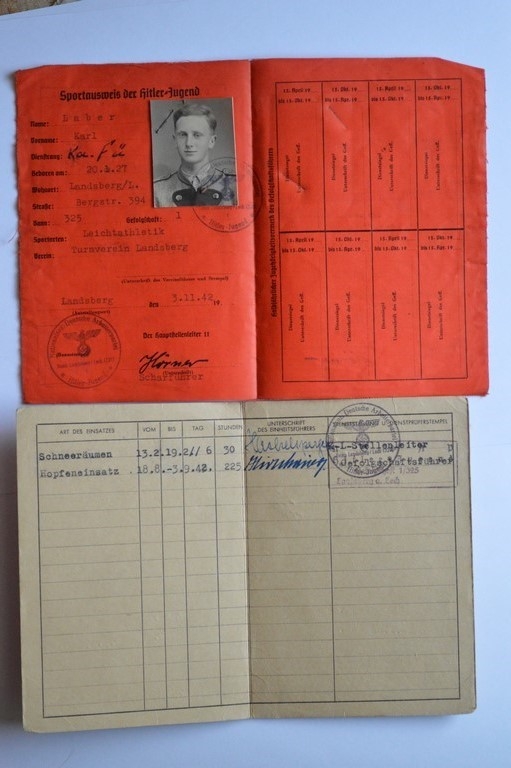 Sportausweis der Hitler-Jugend
Name: Luber
Vorname: Karl
Dienstrang:
Geboren am: 20. .27
Wohnort: Landsberg/L.
Straße: Bergstr. 394
Bann: 325 Gefolgschaft: 1
Sportarten: Leichtathletik
Verein: Turnverein Landsberg
(Unterschrift des Vereinsführers und Stempel)
Landsberg den 3.11.42 19
Der Hauptstellenleiter II
Hörner
(Unterschrift)
Scharführer
15. April 19 15. Okt. 19 15. April 19 15. Okt. 19
bis 15. Okt. 19 bis 15. Apr. 19 bis 15. Okt. 19 bis 15. Apr. 19
Dienstsiegel Dienstsiegel Dienstsiegel Dienstsiegel
Unterschrift des Gef. Unterschrift des Gef. Unterschrift des Gef. Unterschrift des Gef.
15. April 19 15. Okt. 19 15. April 19 15. Okt. 19
bis 15. Okt. 19 bis 15. Apr. 19 bis 15. Okt. 19 bis 15. Apr. 19
Dienstsiegel Dienstsiegel Dienstsiegel Dienstsiegel
Unterschrift des Gef. Unterschrift des Gef. Unterschrift des Gef. Unterschrift des Gef.
ART DES EINSATZES VOM BIS TAG STUNDEN UNTERSCHRIFT DES EINHEITSFÜHRERS
Schneeräumen 13.2. 19.2. 6 30 K-L-Stellenleiter
Hopfeneinsatz 18.8.-3.9.42. 225 Gefolgschaftsführer